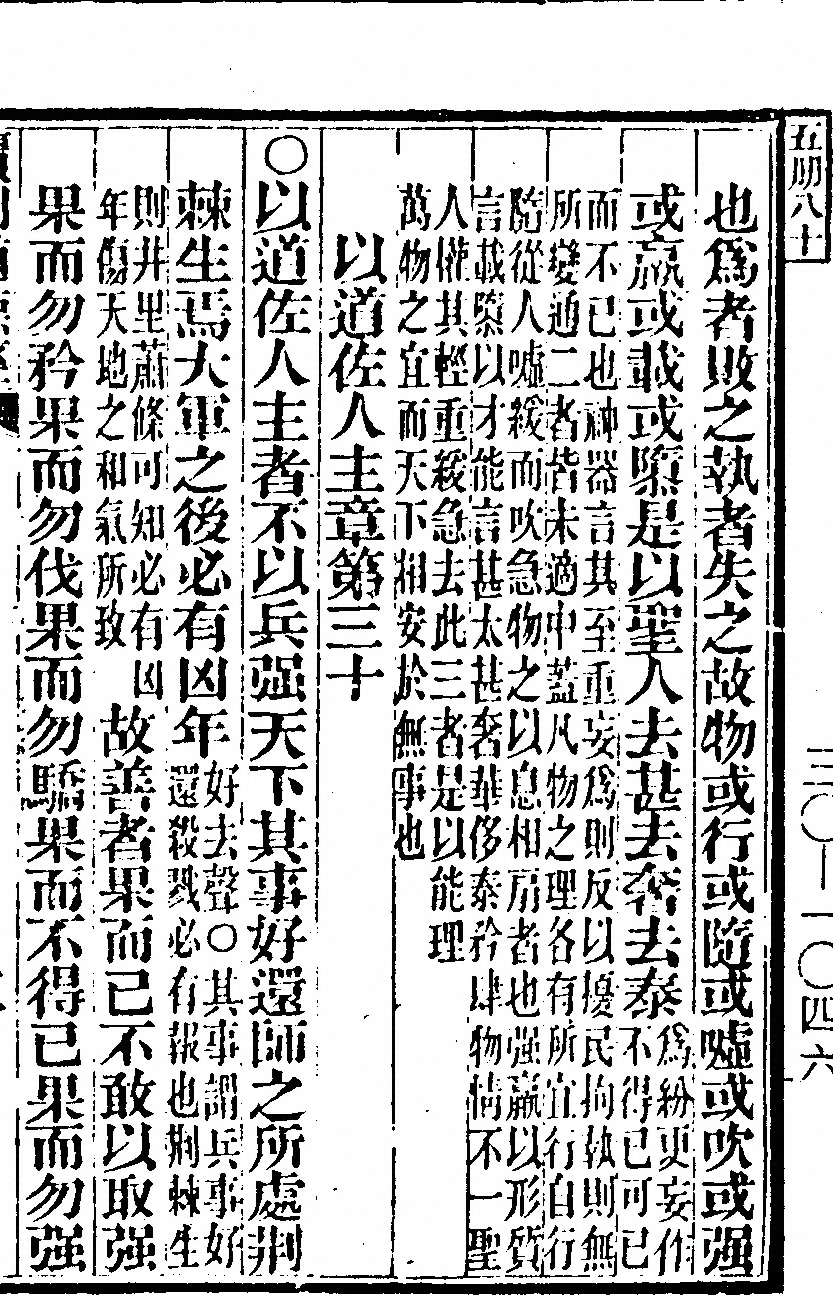 五朋八十
三〇—一〇四六
也爲者敗之執者失之故物或行或隨或噓或吹或强
或羸或載或隳是以聖人去甚去奢去泰
爲紛更妄作
不得已可已
而不已也神器言其至重妄爲則反以擾民拘執則無
所變通二者皆未適中蓋凡物之理各有所宜行自行
隨從人噓緩而吹急物之以息相扇者也强羸以形質
言載隳以才能言甚太甚奢華侈泰矜肆物情不一聖
人權其輕重緩急去此三者是以能理
萬物之宜而天下相安於無事也
以道佐人主章第三十
〇以道佐人主者不以兵强天下其事好還師之所處荆
棘生焉大軍之後必有凶年
好去聲〇其事謂兵事好
還殺戮必有報也荆棘生
則井里蕭條可知必有凶
年傷天地之和氣所致
故善者果而已不敢以取强
果而勿矜果而勿伐果而勿驕果而不得已果而勿强